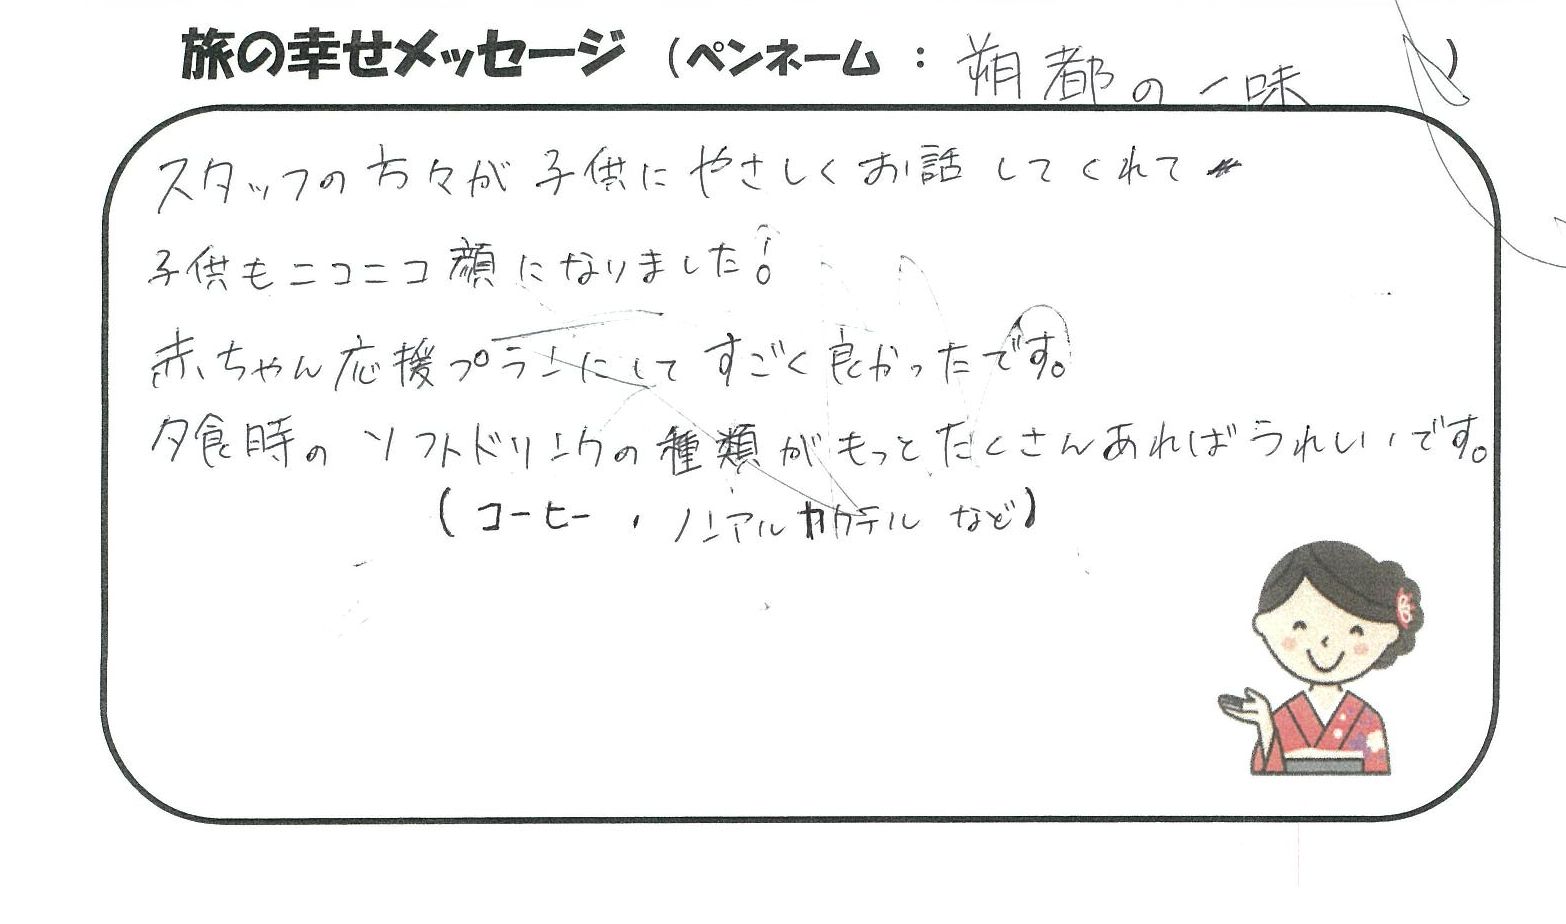 旅の幸せメッセージ（ペンネーム：朔都の一味）
スタッフの方々が子供にやさしくお話してくれて
子供もニコニコ顔になりました！
赤ちゃん応援プランにしてすごく良かったです。
夕食時のソフトドリンクの種類がもっとたくさんあればうれしいです。
（コーヒー、ノンアルカクテルなど）